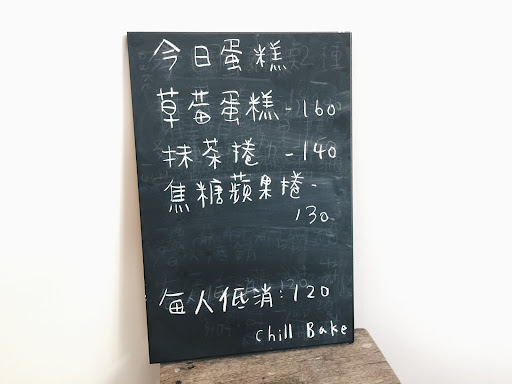 今日蛋糕
草莓蛋糕-160
抹茶捲 -140
焦糖蘋果捲-
130
每人低消:120
Chill Bake